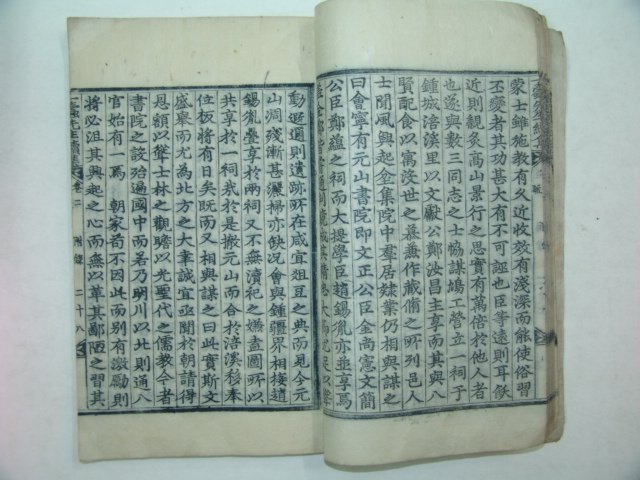 蒙士雖施教有久近收效有淺深而能使俗習
丕變者其功甚大有不可誣也臣等遠則耳飫
近則親炙高山景行之思實有萬倍於他人者
也遂與數三同志之士協謀鳩工營立一祠于
鍾城涪溪里以文獻公鄭汝昌主享而其與八
賢配食以寓沒世之慕兼作藏脩之所列邑人
士聞風興起坌集院中羣居隷業仍相與謀之
曰會寧有元山書院即文正公臣金尙憲文簡
公臣鄭蘊之祠而大提學臣趙錫胤亦並享焉
動遐邇則遺跡所在咸宜俎豆之典而見今元
山凋殘漸甚瀎掃亦缺況會與鍾疆界相接道
錫胤疊享於兩祠又不無瀆祀之嫌盍圖所以
共享於一祠我於是撤元山而合於涪溪移奉
位板將有日矣旣而又相與謀之曰此實斯文
盛擧而尤為北方之大幸誠宜亟聞於朝請得
恩額以聳士林之觀瞻以光聖代之儒教今者
書院之設殆遍國中而若乃明川以北則通八
官始有一焉 朝家苟不因此而別有激勵則
將必沮其興起之心而無以革其鄙陋之習其
一蠹先生續集 卷二 附錄 二十八